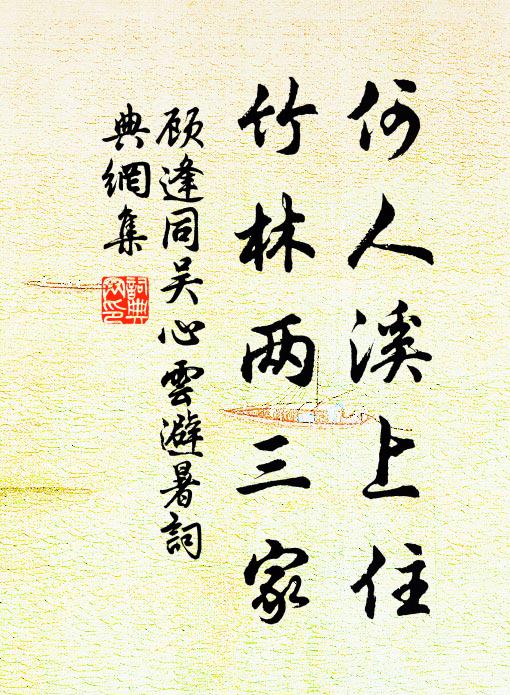 何人溪上住
竹林两三家
顾逢同吴心雲避暑詞
典網集
詞典